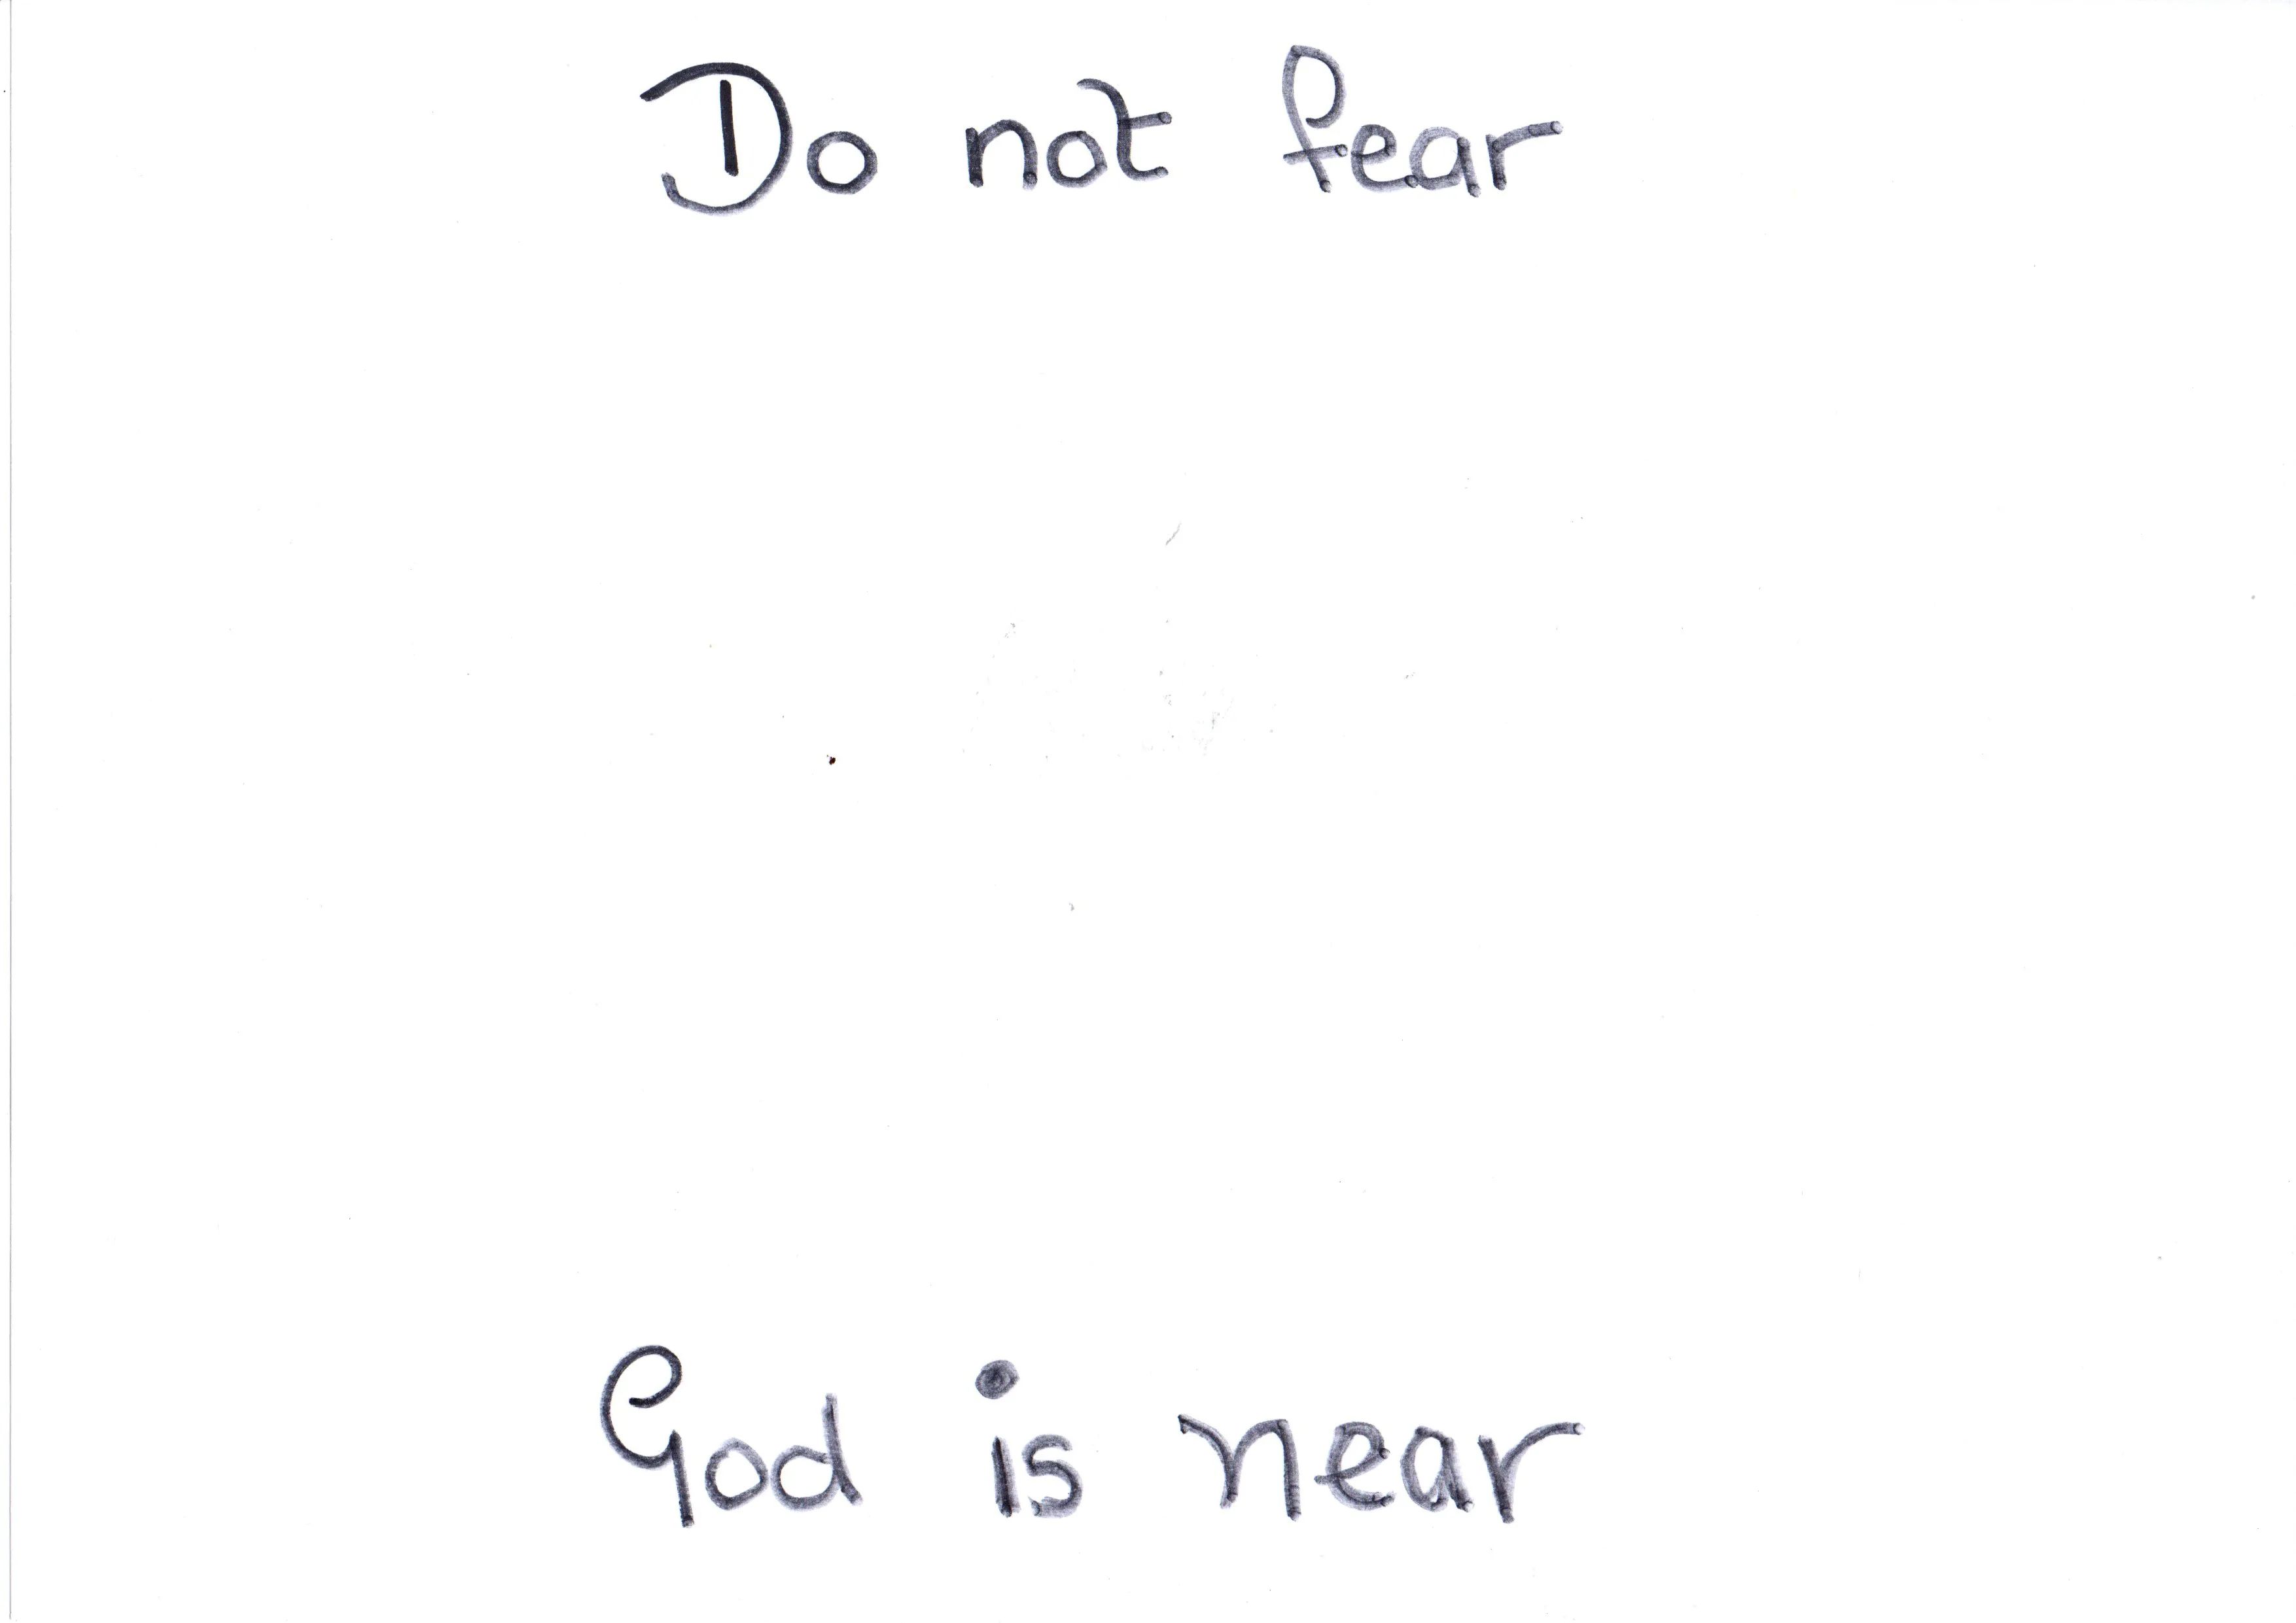 Do not fear
God is near